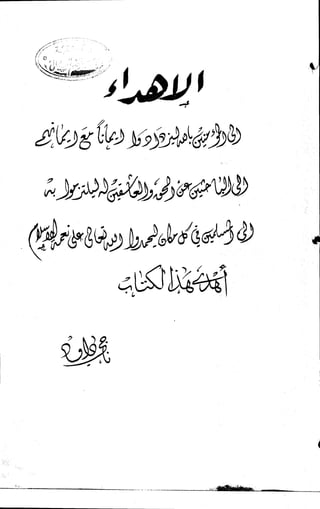 الإهداء
الى المؤمنين بالله ليزدادوا ايماناً مع ايمانهم
الى الباحثين عن الحق والعاشقين له ليلتزموا به
الى المسلمين في كل مكان ليحمدوا الله تعالى على نعمة الإسلام
أهدي هذا الكتاب